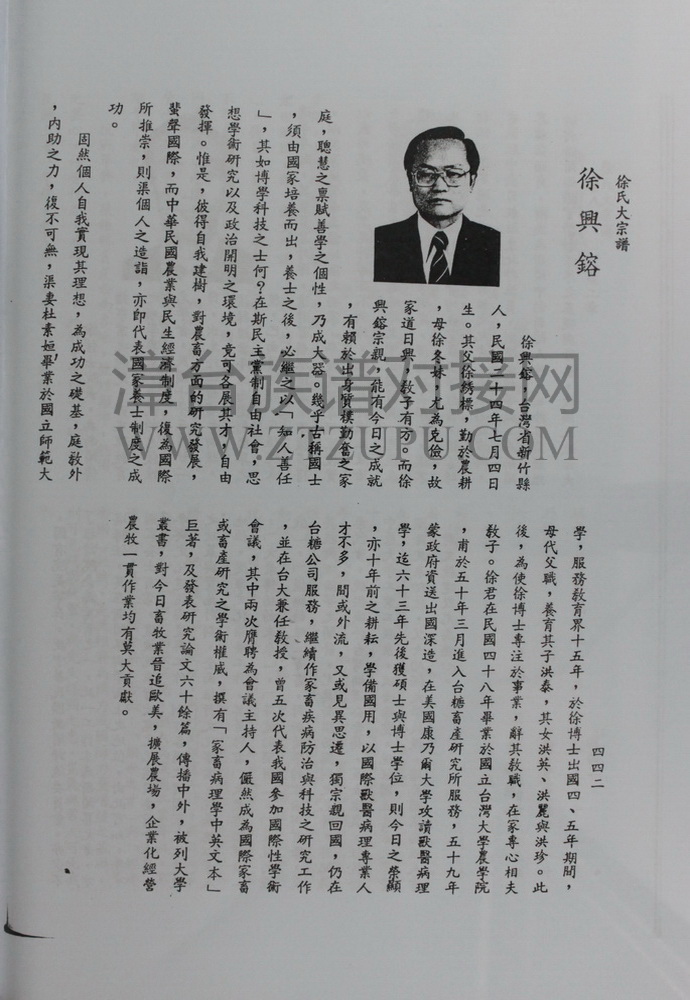 徐氏大宗譜
徐興鎔
徐興鎔，台灣省新竹縣
人，民國二十四年七月四日
生。其父徐綉標，勤於農耕
，母徐冬妹，尤為克儉，故
家道日興，教子有方。而徐
興鎔宗親，能有今日之成就
，有賴於出身質樸勤奮之家
庭，聰慧之稟賦善學之個性，乃成大器。幾乎古稱國士
，須由國家培養而出，養士之後，必繼之以「知人善任
」，其如博學科技之士何？在斯民主黨制自由社會，思
想學術研究以及政治開明之環境，竟可各展其才，自由
發揮。惟是，彼得自我建樹，對農畜方面的研究發展，
蜚聲國際，而中華民國農業與民生經濟制度，復為國際
所推崇，則渠個人之造詣，亦即代表國家養士制度之成
功。
固然個人自我實現其理想，為成功之礎基，庭教外
，內助之力，復不可無，渠妻杜素姮畢業於國立師範大
四四二
學，服務教育界十五年，於徐博士出國四、五年期間，
母代父職，養育其子洪泰，其女洪英、洪麗與洪珍。此
後，為使徐博士專注於事業，辭其教職，在家專心相夫
教子。徐君在民國四十八年畢業於國立台灣大學農學院
，甫於五十年三月進入台糖畜產研究所服務，五十九年
蒙政府資送出國深造，在美國康乃爾大學攻讀獸醫病理
學，迄六十三年先後獲碩士與博士學位，則今日之榮顯
，亦十年前之耕耘，學備國用，以國際獸醫病理專業人
才不多，間或外流，又或見異思遷，獨宗親回國，仍在
台糖公司服務，繼續作家畜疾病防治與科技之研究工作
，並在台大兼任教授，曾五次代表我國參加國際性學術
會議，其中兩次膺聘為會議主持人，儼然成為國際家畜
或畜產研究之學術權威，撰有「家畜病理學中英文本」
巨著，及發表研究論文六十餘篇，傳播中外，被列大學
叢書，對今日畜牧業晉追歐美，擴展農場，企業化經營
農牧一貫作業均有莫大貢獻。
漳台族谱对接网
WWW.ZTZUPU.COM